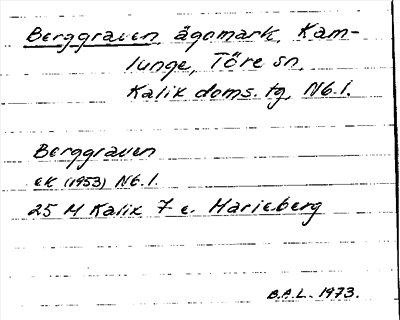 Berggraven, ägomark, Kam-
lunge, Töre sn,
Kalix doms. tg, Nb.l.
Berggraven
ek (1953) Nb.l.
25 M Kalix 7 e. Marieberg
B.A.L. 1973.